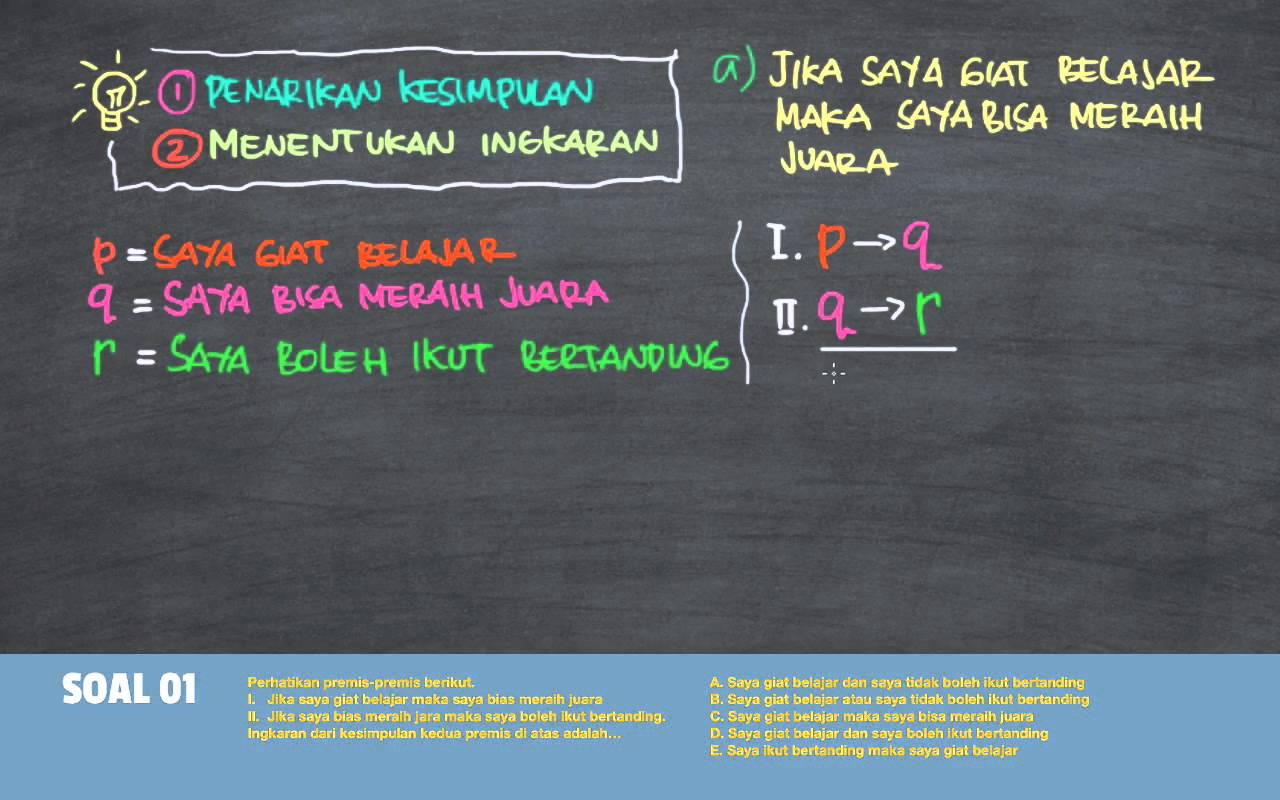 π
1 PENARIKAN KESIMPULAN
2 MENENTUKAN INGKARAN
a) JIKA SAYA GIAT BELAJAR
MAKA SAYA BISA MERAIH
JUARA
p = SAYA GIAT BELAJAR
q = SAYA BISA MERAIH JUARA
r = SAYA BOLEH IKUT BERTANDING
I. p → q
II. q → r
SOAL 01
Perhatikan premis-premis berikut.
I. Jika saya giat belajar maka saya bias meraih juara
II. Jika saya bias meraih jara maka saya boleh ikut bertanding.
Ingkaran dari kesimpulan kedua premis di atas adalah...
A. Saya giat belajar dan saya tidak boleh ikut bertanding
B. Saya giat belajar atau saya tidak boleh ikut bertanding
C. Saya giat belajar maka saya bisa meraih juara
D. Saya giat belajar dan saya boleh ikut bertanding
E. Saya ikut bertanding maka saya giat belajar